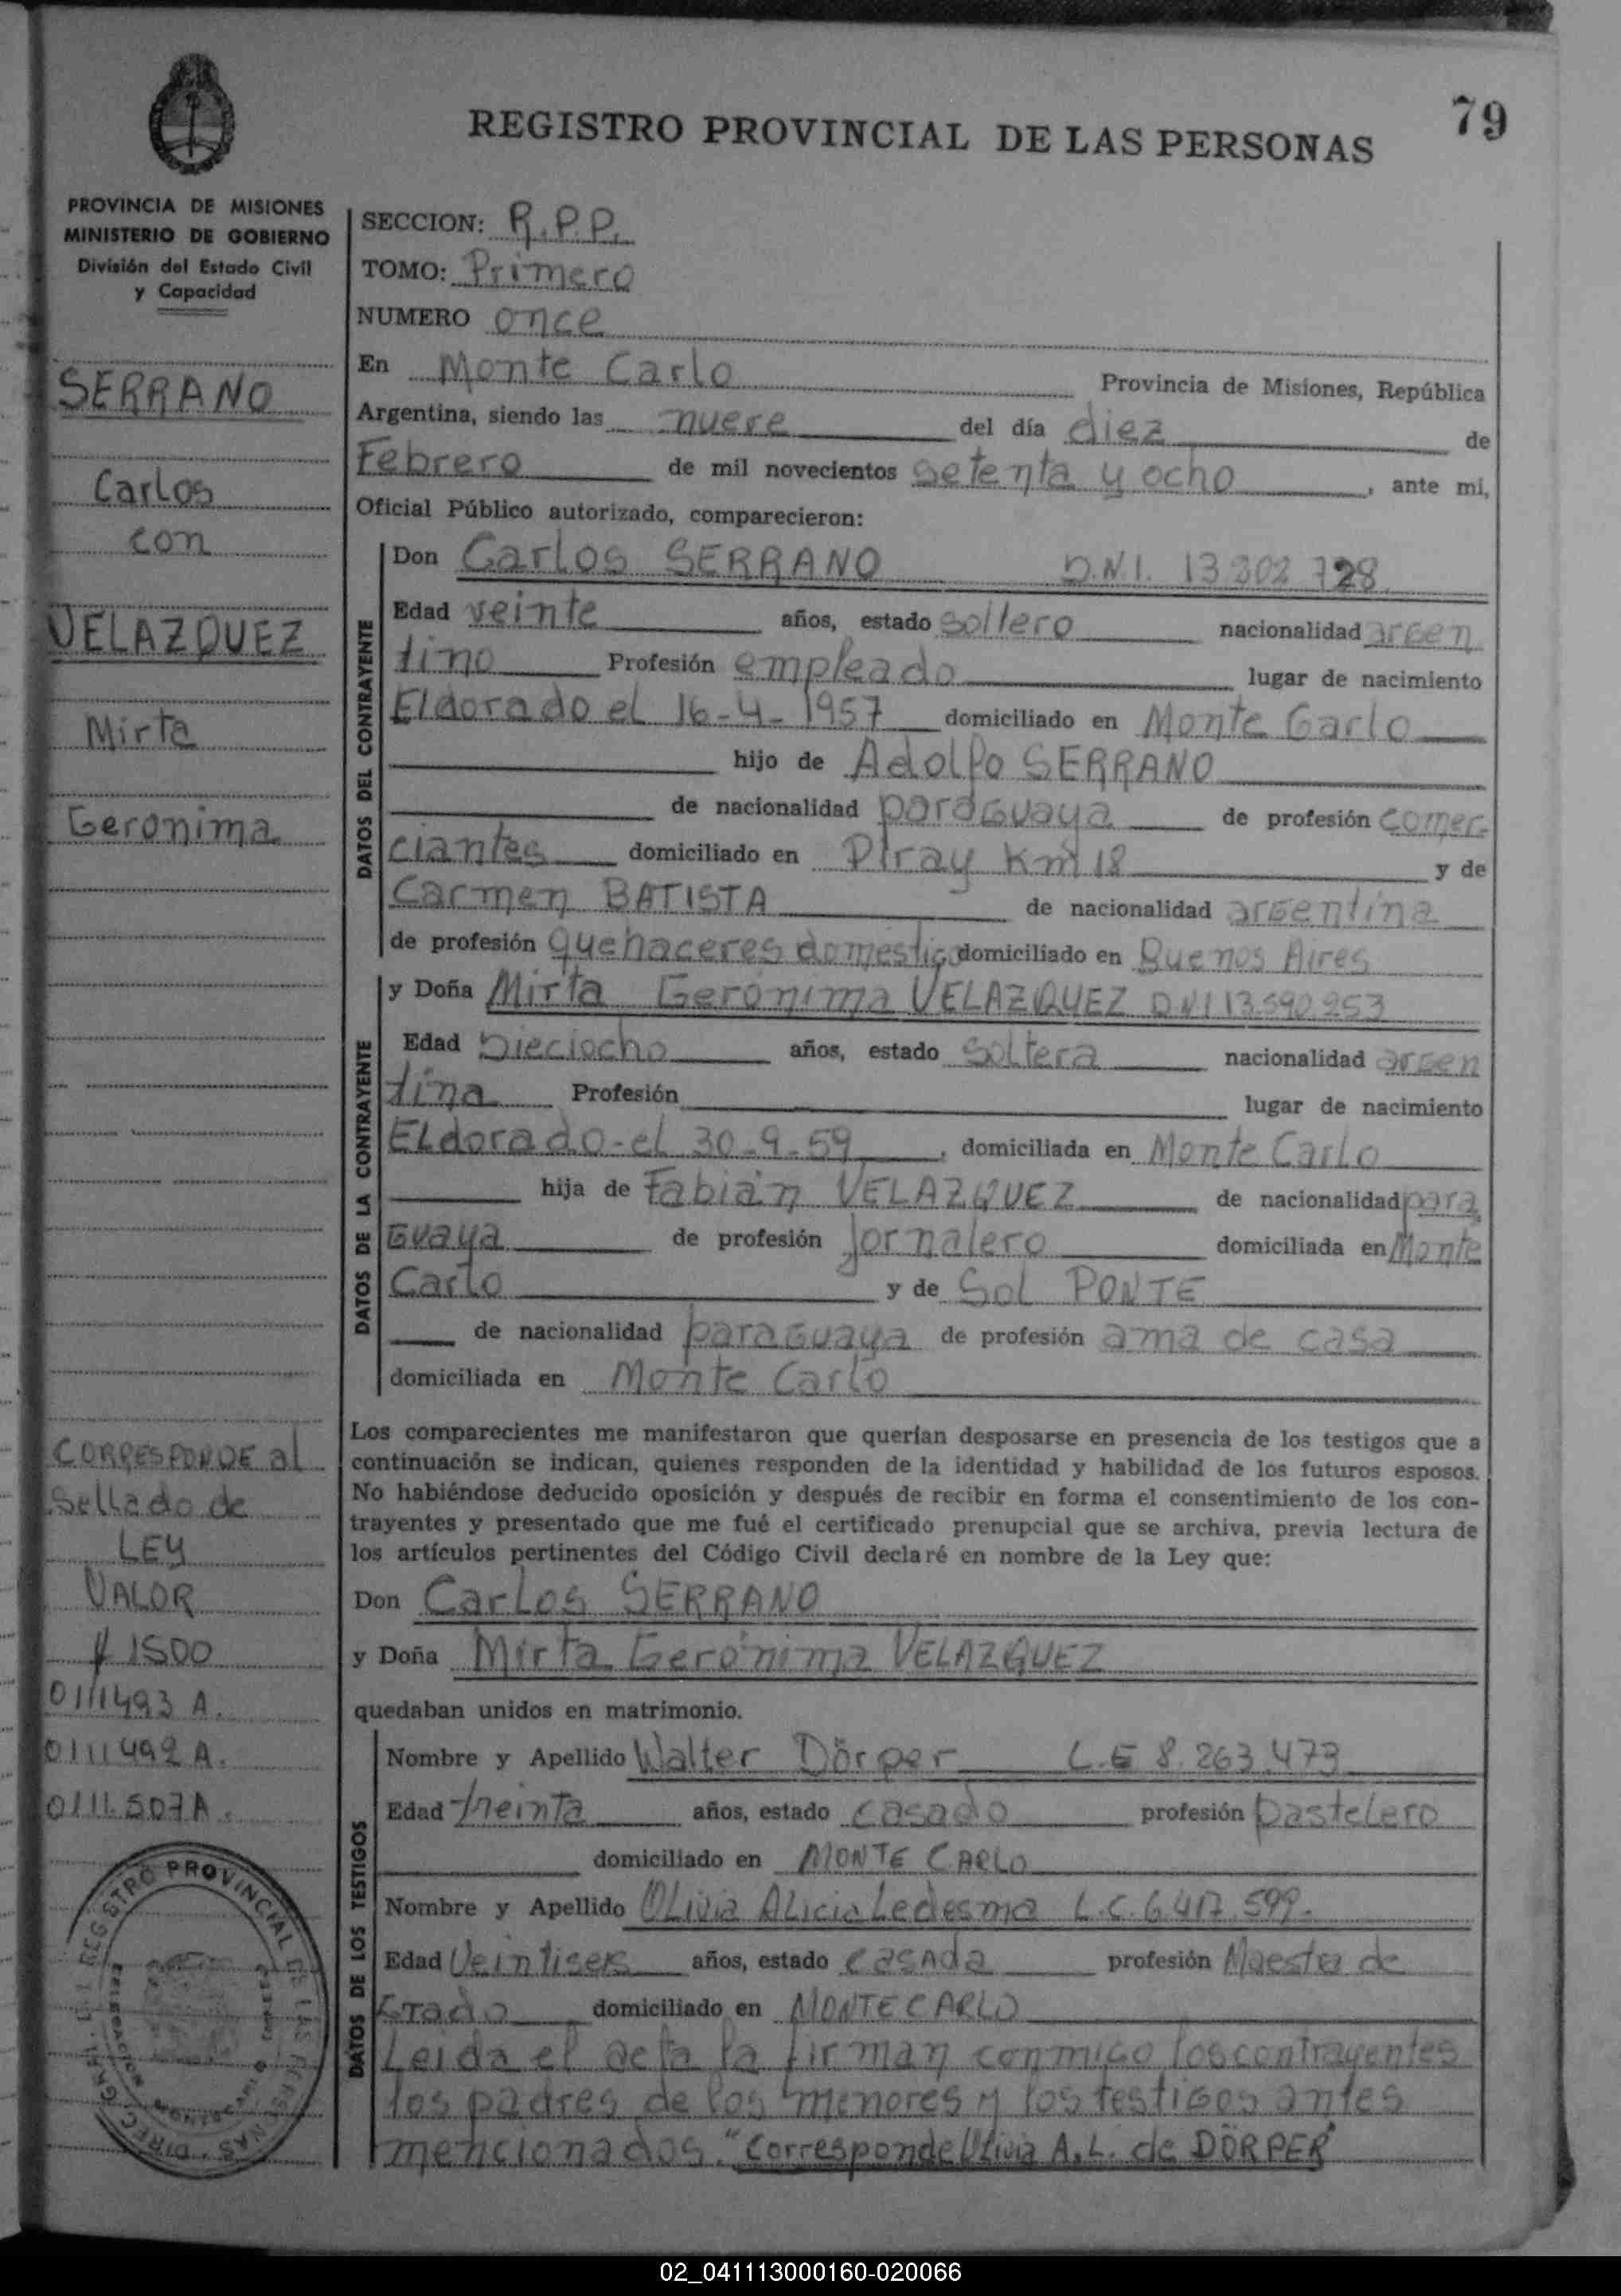 79
REGISTRO PROVINCIAL DE LAS PERSONAS
PROVINCIA DE MISIONES
MINISTERIO DE GOBIERNO
División del Estado Civil
y Capacidad
SERRANO
Carlos
con
VELAZQUEZ
Mirta
Geronima
CORRESPONDE al
Sellado de
LEY
VALOR
$ 1500
0111493 A.
0111492 A.
0111507 A.
REGISTRO PROVINCIAL DE LAS PERSONAS
SECCION: R.P.P.
TOMO: Primero
NUMERO once
En Monte Carlo Provincia de Misiones, República
Argentina, siendo las nueve del día diez de
Febrero de mil novecientos setenta y ocho, ante mi,
Oficial Público autorizado, comparecieron:
DATOS DEL CONTRAYENTE
Don Carlos SERRANO D.N.I. 13 802 728
Edad veinte años, estado soltero nacionalidad argen
tino Profesión empleado lugar de nacimiento
Eldorado el 16-4-1957 domiciliado en Monte Carlo
hijo de Adolfo SERRANO
de nacionalidad paraguaya de profesión comer-
ciantes domiciliado en Piray Km 18 y de
Carmen BATISTA de nacionalidad argentina
de profesión quehaceres domestic domiciliado en Buenos Aires
DATOS DE LA CONTRAYENTE
y Doña Mirta Gerónima VELAZQUEZ DNI 13.590.253
Edad Dieciocho años, estado soltera nacionalidad argen
tina Profesión lugar de nacimiento
ELdorado-el 30-9-59, domiciliada en Monte Carlo
hija de Fabián VELAZQUEZ de nacionalidad para
guaya de profesión jornalero domiciliada en Monte
Carlo y de Sol PONTE
de nacionalidad paraguaya de profesión ama de casa
domiciliada en Monte Carlo
Los comparecientes me manifestaron que querían desposarse en presencia de los testigos que a
continuación se indican, quienes responden de la identidad y habilidad de los futuros esposos.
No habiéndose deducido oposición y después de recibir en forma el consentimiento de los con-
trayentes y presentado que me fué el certificado prenupcial que se archiva, previa lectura de
los artículos pertinentes del Código Civil declaré en nombre de la Ley que:
Don Carlos SERRANO
y Doña Mirta Gerónima VELAZQUEZ
quedaban unidos en matrimonio.
DATOS DE LOS TESTIGOS
Nombre y Apellido Walter Dörper L.E 8.263.473
Edad treinta años, estado casado profesión pastelero
domiciliado en MONTE CARLO
Nombre y Apellido OLivia ALicia Ledesma L.C. 6.417.599.
Edad Veintiseis años, estado casada profesión Maestra de
Grado domiciliado en MONTECARLO
Leida el acta la firman conmigo los contrayentes
los padres de los menores y los testigos antes
mencionados. "Corresponde Olivia A.L. de DÖRPER"
02_041113000160-020066